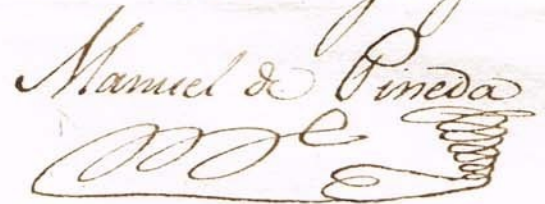 Manuel de Pineda